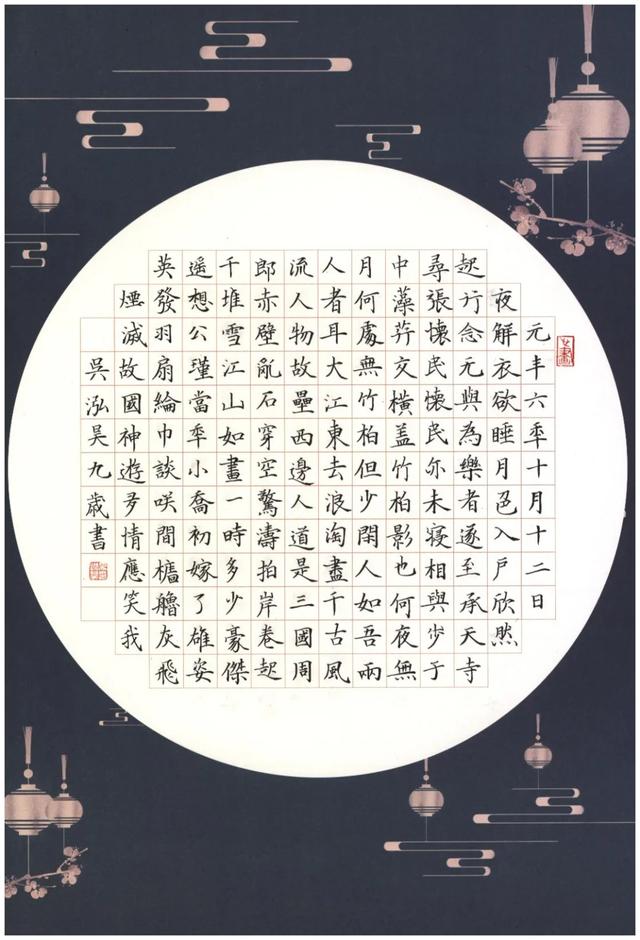 元丰六秊十月十二日
夜解衣欲睡月色入戶欣然
起行念无與為樂者遂至承天寺
尋張懷民懷民亦未寢相與步于
中藻荇交橫蓋竹柏影也何夜無
月何處無竹柏但少閑人如吾兩
人者耳大江東去浪淘盡千古風
流人物故壘西邊人道是三國周
郎赤壁亂石穿空驚濤拍岸卷起
千堆雪江山如畫一時多少豪傑
遥想公瑾當秊小喬初嫁了雄姿
英發羽扇綸巾談咲間檣艣灰飛
煙滅故國神遊多情應笑我
吳泓昊九歲書